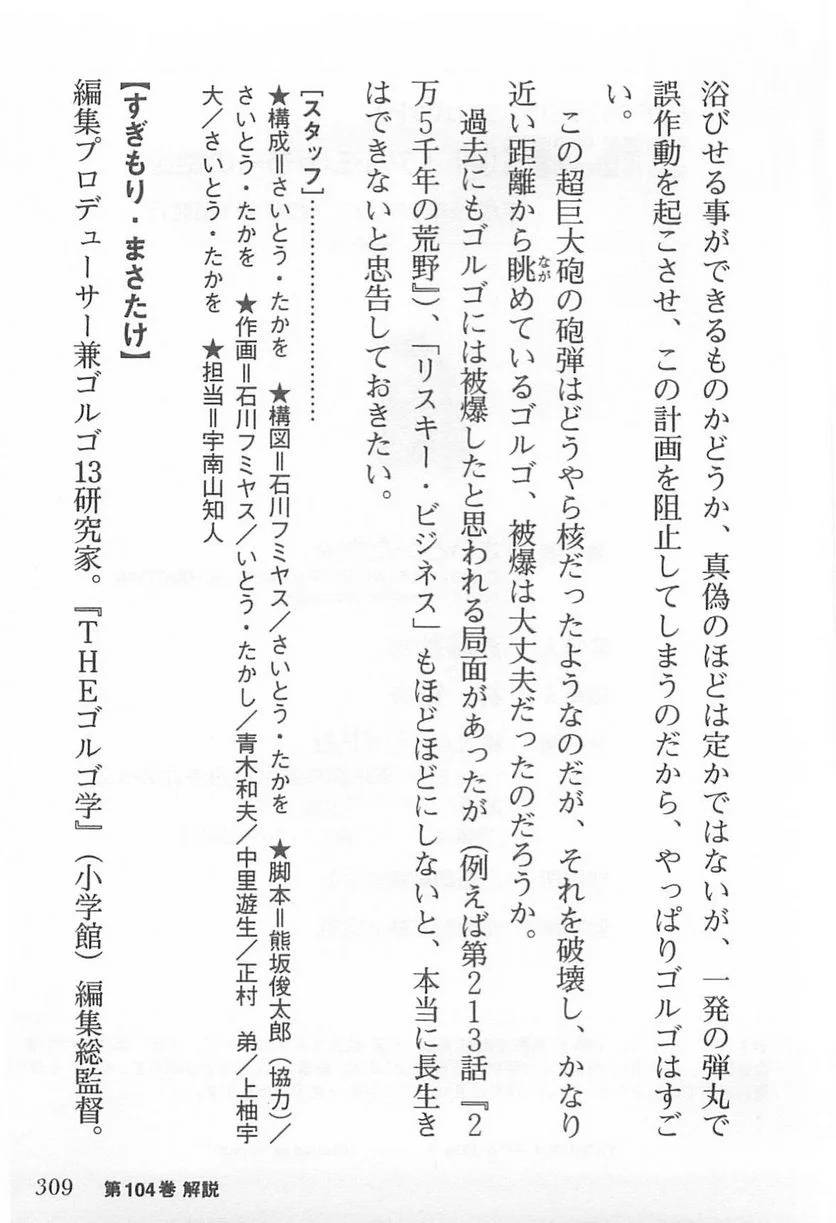 浴びせる事ができるものかどうか、真偽のほどは定かではないが、一発の弾丸で
誤作動を起こさせ、この計画を阻止してしまうのだから、やっぱりゴルゴはすご
い。
この超巨大砲の砲弾はどうやら核だったようなのだが、それを破壊し、かなり
近い距離から眺めているゴルゴ、被爆は大丈夫だったのだろうか。
なが
過去にもゴルゴには被爆したと思われる局面があったが（例えば第213話『2
万5千年の荒野』）、「リスキー・ビジネス」もほどほどにしないと、本当に長生き
はできないと忠告しておきたい。
［スタッフ］……………………………
★構成＝さいとう・たかを　★構図＝石川フミヤス／さいとう・たかを　★脚本＝熊坂俊太郎（協力）／
さいとう・たかを　★作画＝石川フミヤス／いとう・たかし／青木和夫／中里遊生／正村　弟／上柚宇
大／さいとう・たかを　★担当＝宇南山知人
【すぎもり・まさたけ】
編集プロデューサー兼ゴルゴ13研究家。『THEゴルゴ学』（小学館）編集総監督。
309 第104巻 解説